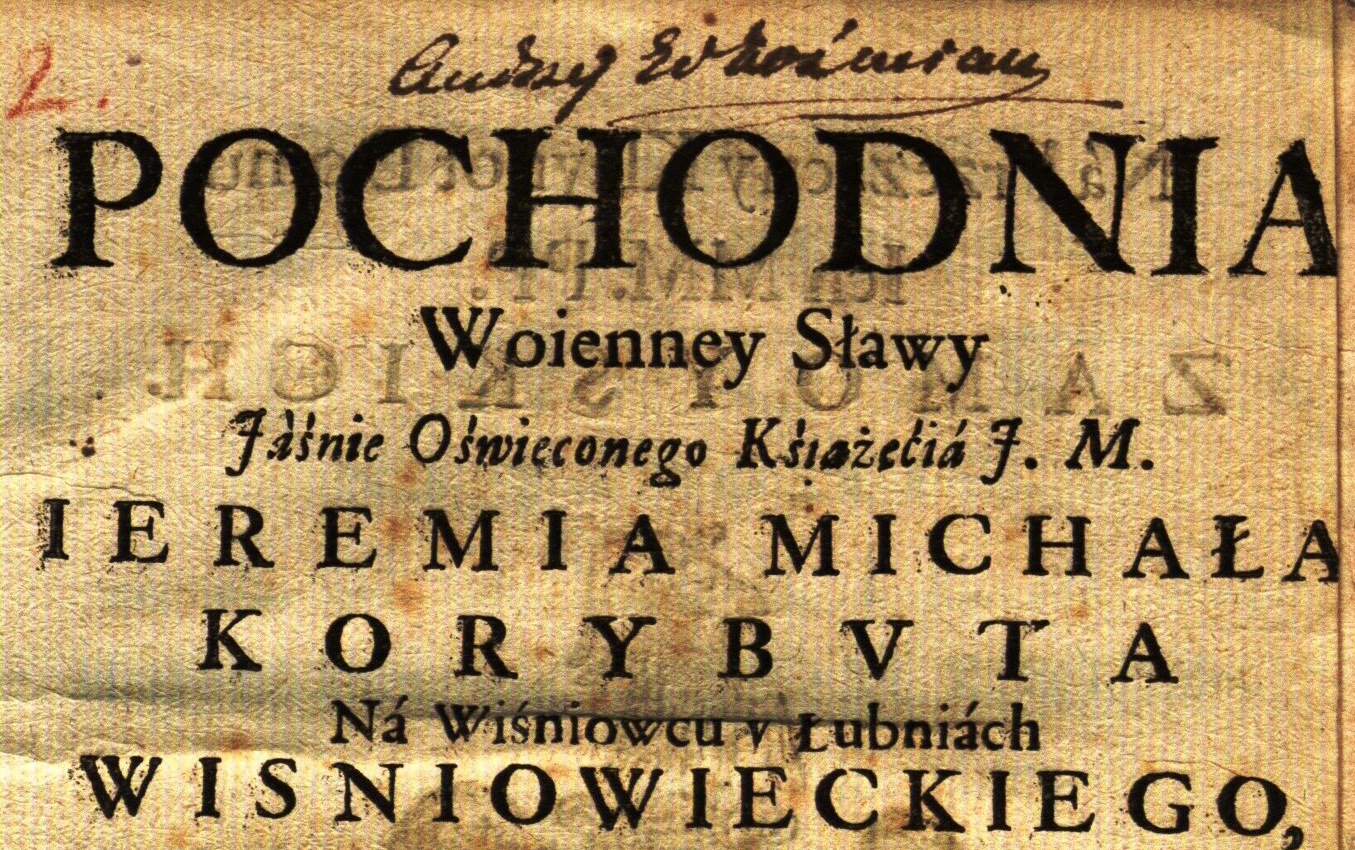 2.
Andrzej Ed. Koźmian
POCHODNIA
Woienney Sławy
Jáśnie Oświeconego Kśiążećiá J. M.
IEREMIA MICHAŁA
KORYBVTA
Ná Wiśniowcu y Łubniách
WISNIOWIECKIEGO,